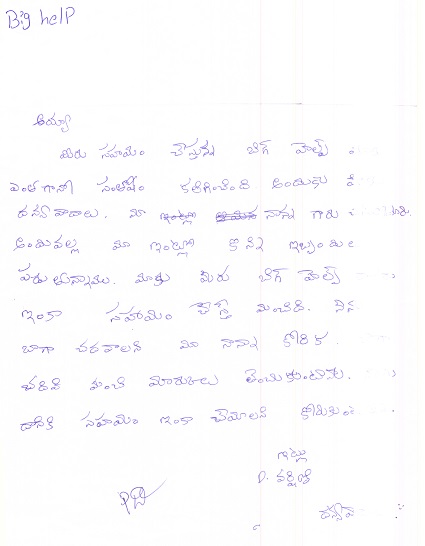 Big help
అయ్యా
మీరు సహాయం చేస్తున్న బిగ్ హెల్ప్
ఎంత గానో సంతోషం కలిగించింది అందుకు
ధన్యవాదాలు. మా ఇంట్లో నాన్న గారు
అందువల్ల మా ఇంట్లో కొన్ని ఇబ్బందులు
పడుతున్నాము. మాకు మీరు బిగ్ హెల్ప్
ఇంకా సహాయం చేస్తే మంచిది. నేను
బాగా చదవాలని మా నాన్న కోరిక.
చదివి మంచి మార్కులు తెంచుకుంటాను.
దానికి సహాయం ఇంకా చేయాలని
ఇట్లు
D. వర్షిణి